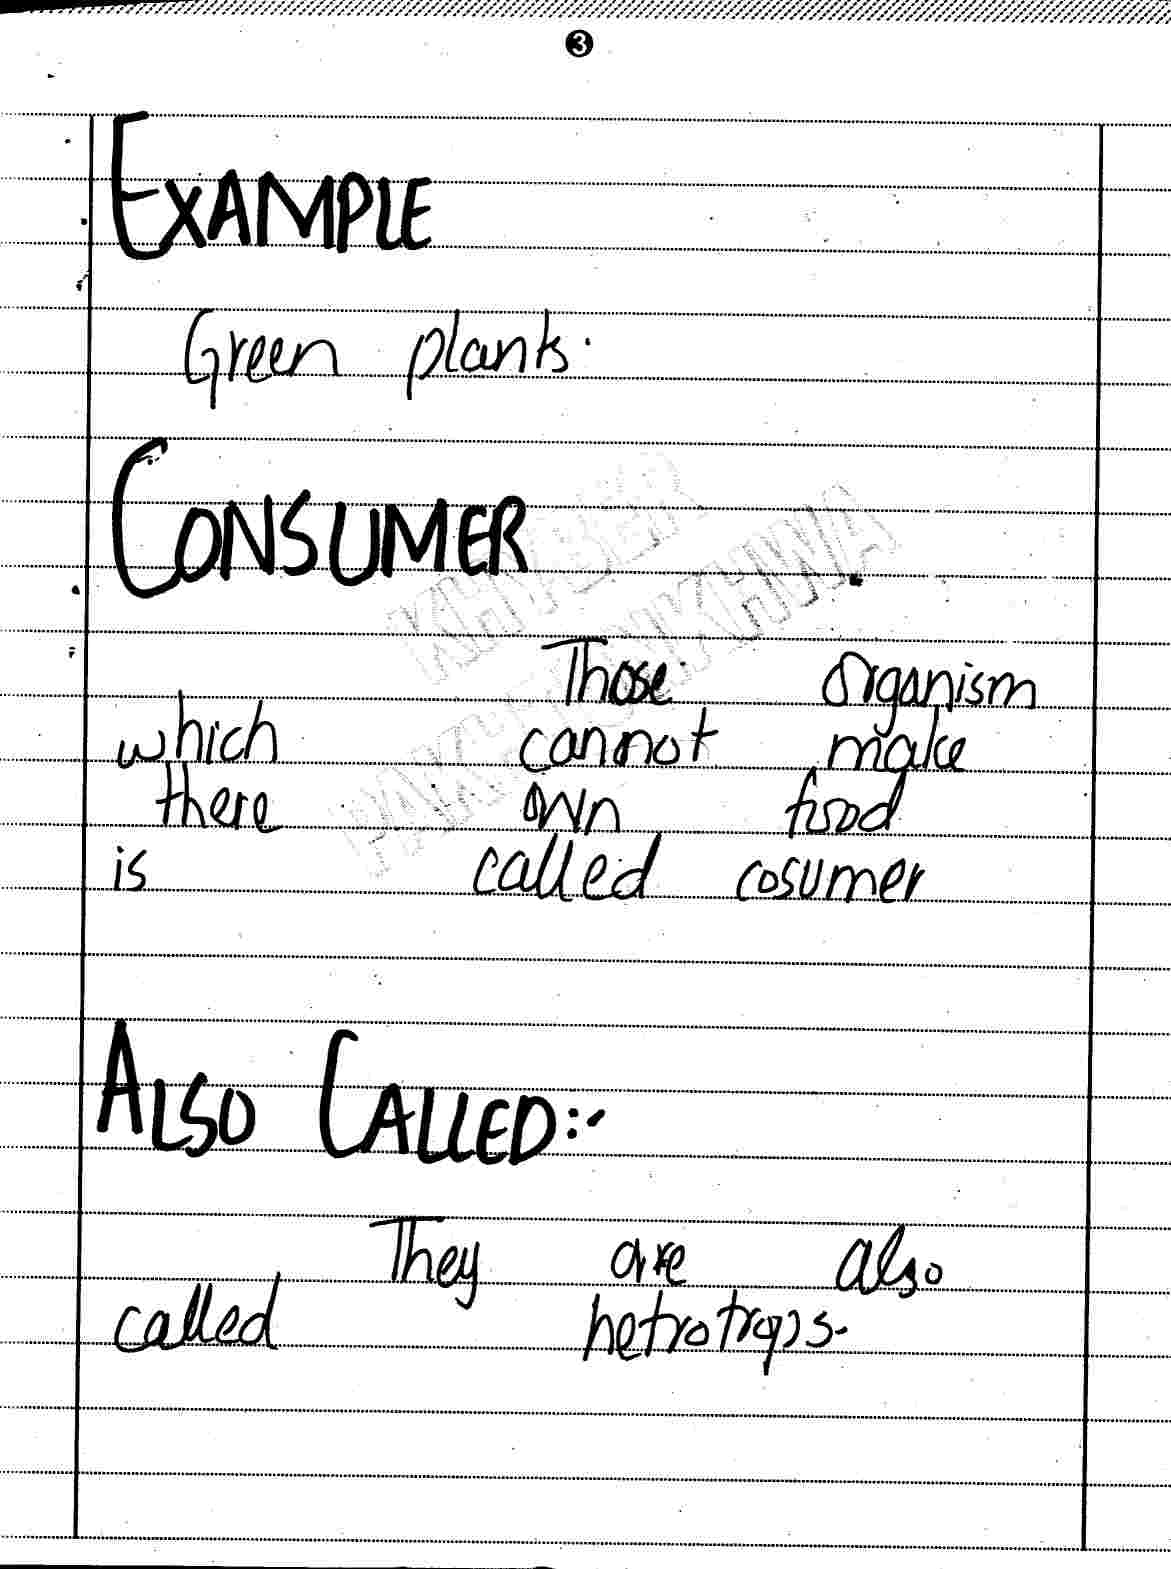 3
EXAMPLE
Green plants.
CONSUMER
KHYBER
PAKHTUNKHWA
Those organism
which cannot make
there own food
is called cosumer
ALSO CALLED:-
They are also
called